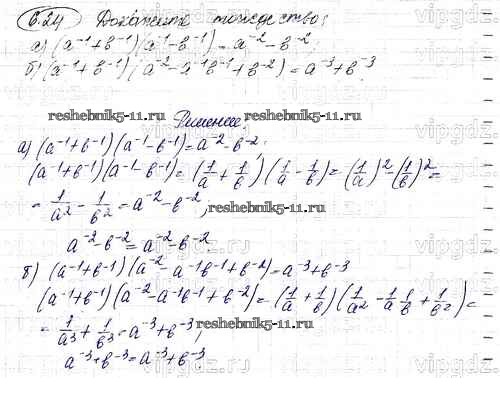 6.24 Докажите тождество:
а) (a⁻¹+b⁻¹)(a⁻¹-b⁻¹)=a⁻²-b⁻²;
б) (a⁻¹+b⁻¹)(a⁻²-a⁻¹b⁻¹+b⁻²)=a⁻³+b⁻³.
reshebnik5-11.ru reshebnik5-11.ru
Решение:
а) (a⁻¹+b⁻¹)(a⁻¹-b⁻¹)=a⁻²-b⁻²;
(a⁻¹+b⁻¹)(a⁻¹-b⁻¹)=(1/a+1/b)(1/a-1/b)=(1/a)²-(1/b)²=
=1/a²-1/b²=a⁻²-b⁻²,
reshebnik5-11.ru
a⁻²-b⁻²=a⁻²-b⁻²
б) (a⁻¹+b⁻¹)(a⁻²-a⁻¹b⁻¹+b⁻²)=a⁻³+b⁻³
(a⁻¹+b⁻¹)(a⁻²-a⁻¹b⁻¹+b⁻²)=(1/a+1/b)(1/a²-1/a 1/b+1/b²)=
=1/a³+1/b³=a⁻³+b⁻³,
reshebnik5-11.ru
a⁻³+b⁻³=a⁻³+b⁻³
vipgdz.com